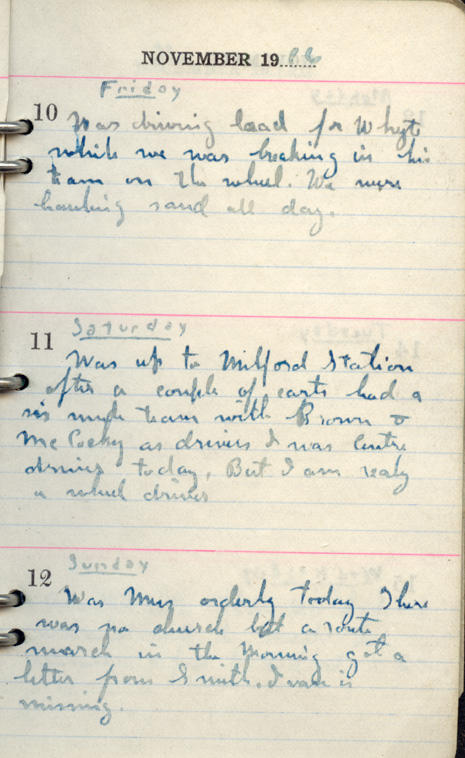 NOVEMBER 1916
Friday
10 Was driving lead for Whyt
while we was breaking in his
team on the wheel. We were
hawking sand all day.
Saturday
11 Was up to Milford Station
after a couple of carts had a
six mule team with Brown &
as drivers I was Centre
driver today, But I am realy
a wheel driver
Sunday
12 Was Mess orderly today There
was no church but a route
march in the Morning got a
letter from Smith. Ivan is
missing.